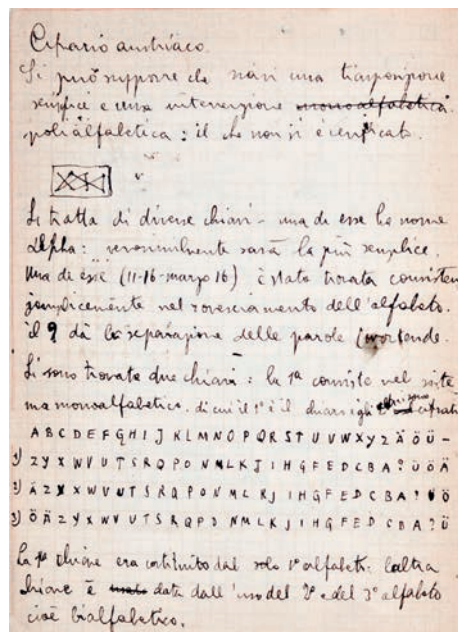 Cifrario austriaco.
Si può supporre che siavi una trasposizione
semplice e una intervenzione monoalfabetica
polialfabetica: il che non si è verificato.
Si tratta di diverse chiavi - una di esse ha nome
Alpha: verosimilmente sarà la più semplice.
Una di esse (11-16-marzo 16) è stata trovata consisten
semplicemente nel rovesciamento dell'alfabeto.
il 9 dà la separazione delle parole (wortende.
Si sono trovate due chiavi: la 1ª consiste nel siste
ma monoalfabetico. di cui il 1º è il chiaro gli altri sono cifrati
A B C D E F G H I J K L M N O P Q R S T U V W X Y Z Ä Ö Ü -
1) Z Y X W V U T S R Q P O N M L K J I H G F E D C B A ? Ü Ö Ä
2) Ä Z Y X W V U T S R Q P O N M L K J I H G F E D C B A ? Ü Ö
3) Ö Ä Z Y X W V U T S R Q P O N M L K J I H G F E D C B A ? Ü
La 1ª chiave era costituito dal solo 1º alfabeto: l'altra
chiave è usato data dall'uso del 2º e del 3º alfabeto
cioè bialfabetico.